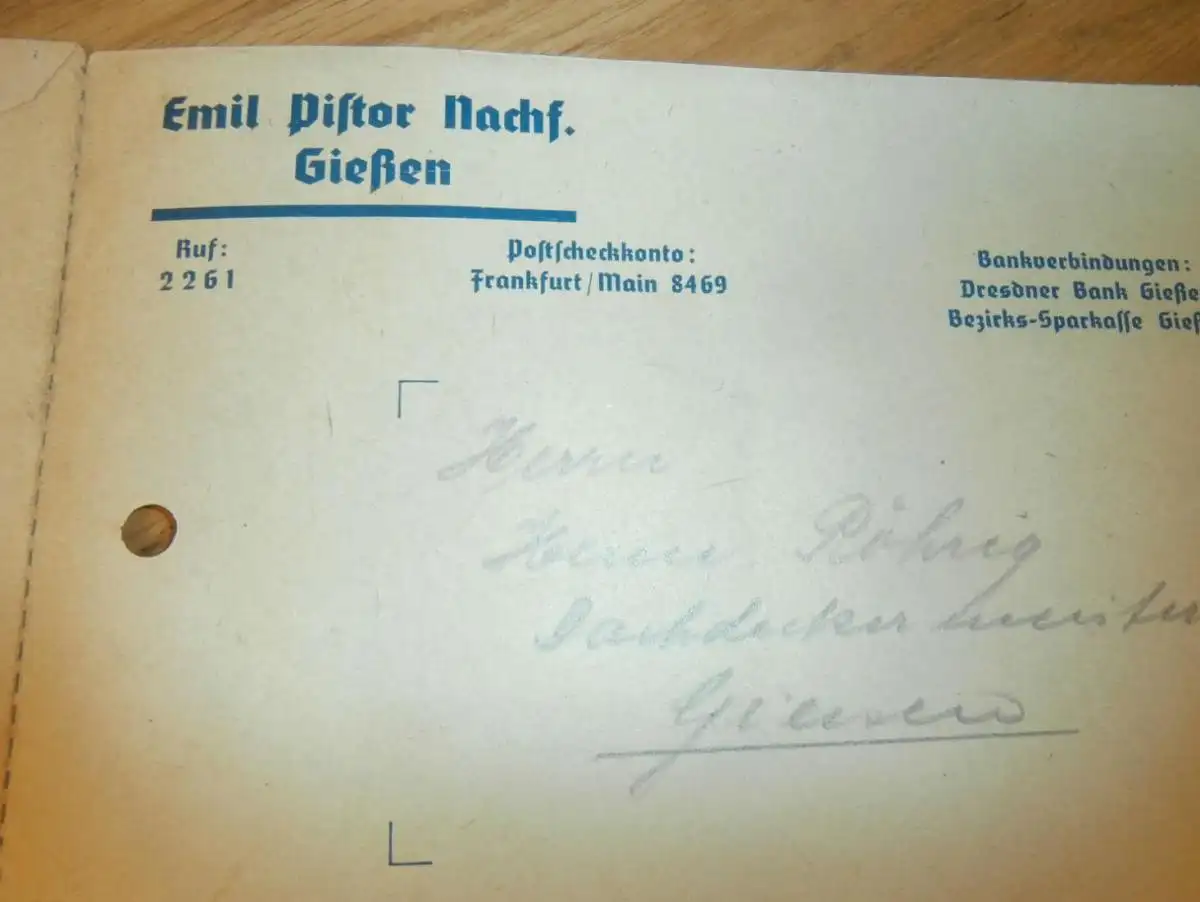 Emil Piſtor Nachf.
Gießen
Ruf:
2261
Poſtſcheckkonto:
Frankfurt/Main 8469
Bankverbindungen:
Dresdner Bank Gieße
Bezirks-Sparkaſſe Gieß
Herrn
Röhrig
Dachdeckermeister
Giessen